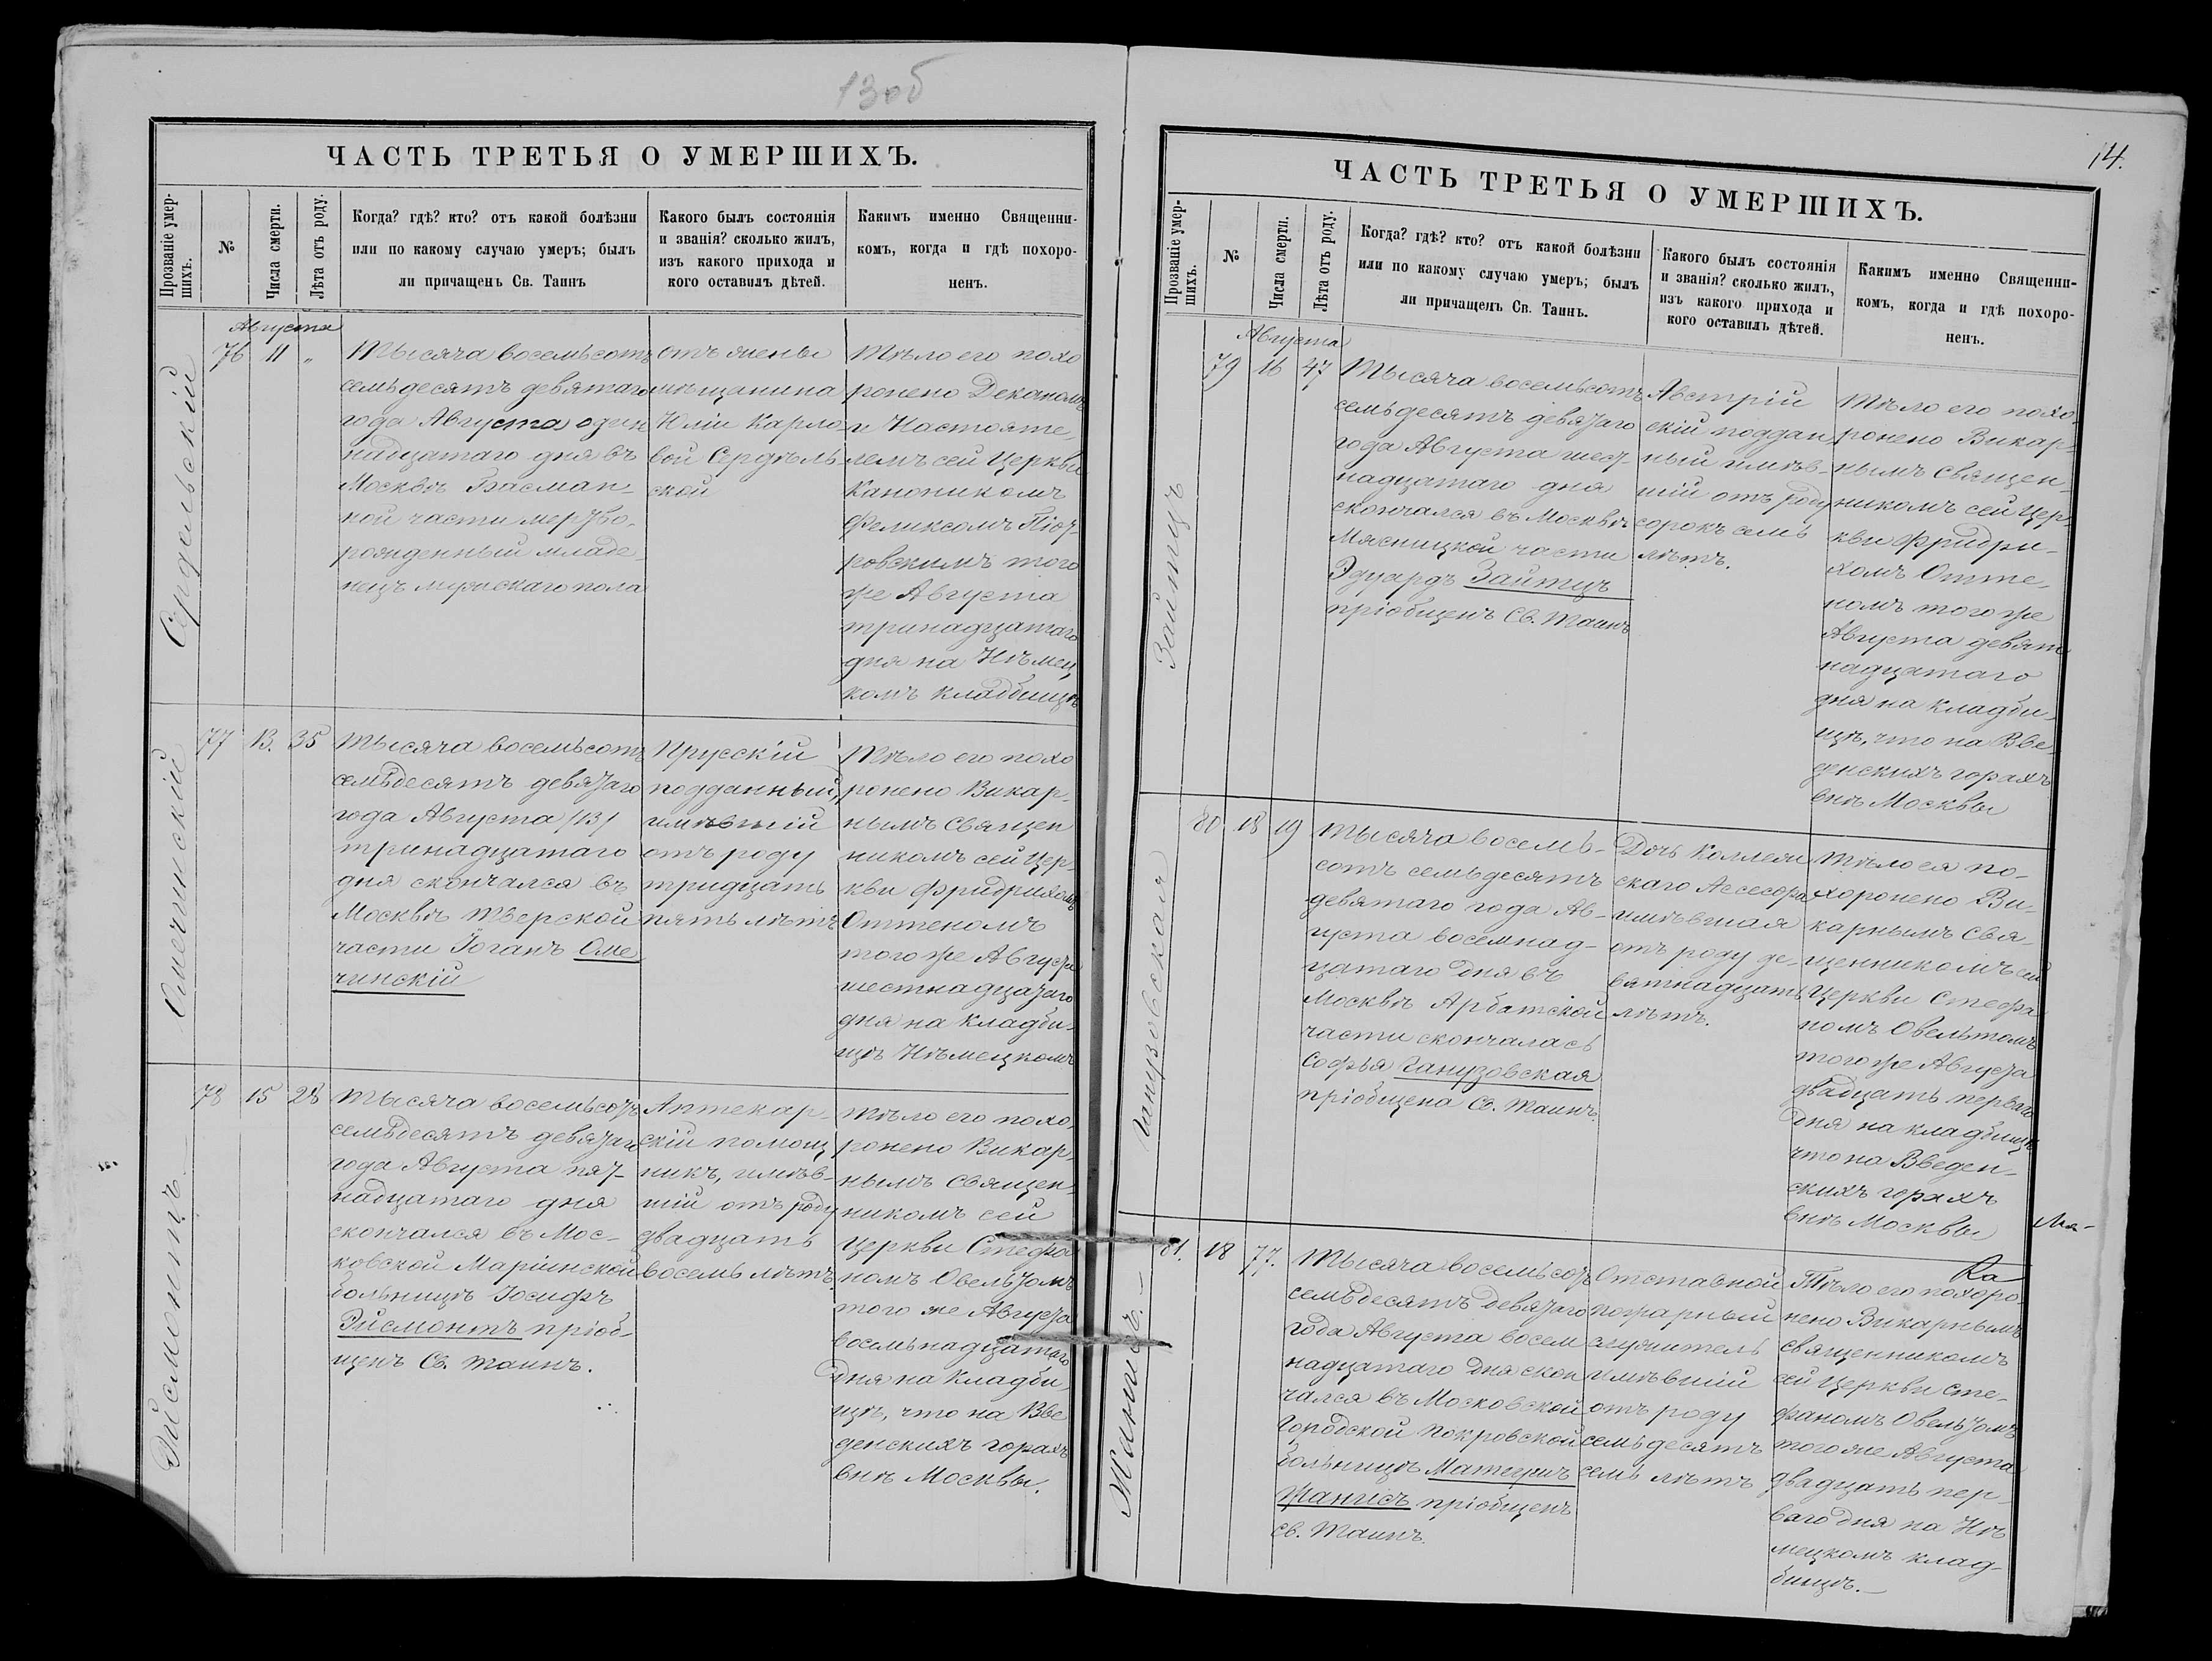 13об
ЧАСТЬ ТРЕТЬЯ О УМЕРШИХЪ.
Прозваніе умер-
шихъ.
№
Числа смерти.
Лѣта отъ роду.
Когда? гдѣ? кто? отъ какой болѣзни
или по какому случаю умеръ; былъ
ли причащенъ Св. Таинъ
Какого былъ состоянія
и званія? сколько жилъ,
изъ какого прихода и
кого оставилъ дѣтей.
Какимъ именно Священни-
комъ, когда и гдѣ похоро-
ненъ.
Августа
Сердельскій
76 11 "
Тысяча восемьсотъ
семьдесятъ девятаго
года Августа один
надцатаго дня въ
Москвѣ Басман-
ной части мертво-
рожденный младе
нецъ мужскаго пола
отъ жены
мѣщанина
Юліи Карло
вой Сердѣль
ской
Тѣло его похо
ронено Деканомъ
и Настояте,
лемъ сей Церкви
Каноникомъ
Феликсомъ Піот-
ровскимъ того
же Августа
тринадцатаго
дня на Нѣмец
комъ кладбищѣ
Омечинскій
77 13. 35
Тысяча восемьсотъ
семьдесятъ девятаго
года Августа /13/
тринадцатаго
дня скончался въ
Москвѣ Тверской
части Іоганъ Оме
чинскій
Прусскій
подданный,
имѣвшій
отъ роду
тридцать
пять лѣтъ
Тѣло его похо
ронено Викар-
нымъ Священ
никомъ сей Цер-
кви Фридрихомъ
Оттеномъ
того же Августа
шестнадцатаго
дня на кладби-
щѣ Нѣмецкомъ
Эйсмонтъ
78 15 28
Тысяча восемьсотъ
семьдесятъ девятаго
года Августа пят-
надцатаго дня
скончался въ Мос-
ковской Маріинской
больницѣ Іосифъ
Эйсмонтъ пріоб-
щенъ Св. Таинъ.
Аптекар-
скій помощ
никъ, имѣв-
шій отъ роду
двадцать
восемь лѣтъ
Тѣло его похо,
ронено Викар,
нымъ Священ,
никомъ сей
Церкви Стефа
номъ Овельтомъ
того же Августа
восемьнадцатаго
дня на Кладби,
щѣ, что на Вве
денскихъ горахъ
внѣ Москвы.
14.
ЧАСТЬ ТРЕТЬЯ О УМЕРШИХЪ.
Прозваніе умер-
шихъ.
№
Числа смерти.
Лѣта отъ роду.
Когда? гдѣ? кто? отъ какой болѣзни
или по какому случаю умеръ; былъ
ли причащенъ Св. Таинъ.
Какого былъ состоянія
и званія? сколько жилъ,
изъ какого прихода и
кого оставилъ дѣтей.
Какимъ именно Священни-
комъ, когда и гдѣ похоро-
ненъ.
Августа
Зайтцъ
79 16 47
Тысяча восемьсотъ
семьдесятъ девятаго
года Августа шест-
надцатаго дня
скончался въ Москвѣ
Мясницкой части
Эдуардъ Зайтцъ
пріобщенъ Св. Таинъ
Австрій
скій поддан
ный имѣв-
шій отъ роду
сорокъ семь
лѣтъ.
Тѣло его похо-
ронено Викар-
нымъ Священ-
никомъ сей Цер-
кви Фридри-
хомъ Отте-
номъ того же
Августа девят
надцатаго
дня на кладби-
щѣ, что на Вве-
денскихъ горахъ
внѣ Москвы
Ганузовская
80 18 19
Тысяча восемь-
сотъ семьдесятъ
девятаго года Ав-
густа восемнад-
цатаго дня въ
Москвѣ Арбатской
части скончалась
Софья Ганузовская
пріобщена Св. Таинъ
Дочь Коллеж
скаго Ассесора
имѣвшая
отъ роду де-
вятнадцать
лѣтъ.
Тѣло ея по-
хоронено Ви-
карнымъ Свя-
щенникомъ сей
Церкви Стефа
номъ Овельтомъ
того же Августа
двадцать перваго
дня на кладбищѣ
что на Введен-
скихъ горахъ
внѣ Москвы
81. 18 77.
Тысяча восемьсотъ
семьдесятъ девятаго
года Августа восем
надцатаго дня скон
чался въ Московской
Городской Покровской
больницѣ
пріобщенъ
Св. Таинъ.
Отставной
пожарный
служитель
имѣвшій
отъ роду
семьдесятъ
семь лѣтъ
Тѣло его похоро-
нено Викарнымъ
священникомъ
сей Церкви Сте-
фаномъ Овельтомъ
того же Августа
двадцать пер-
ваго дня на Нѣ
мецкомъ клад-
бищѣ.